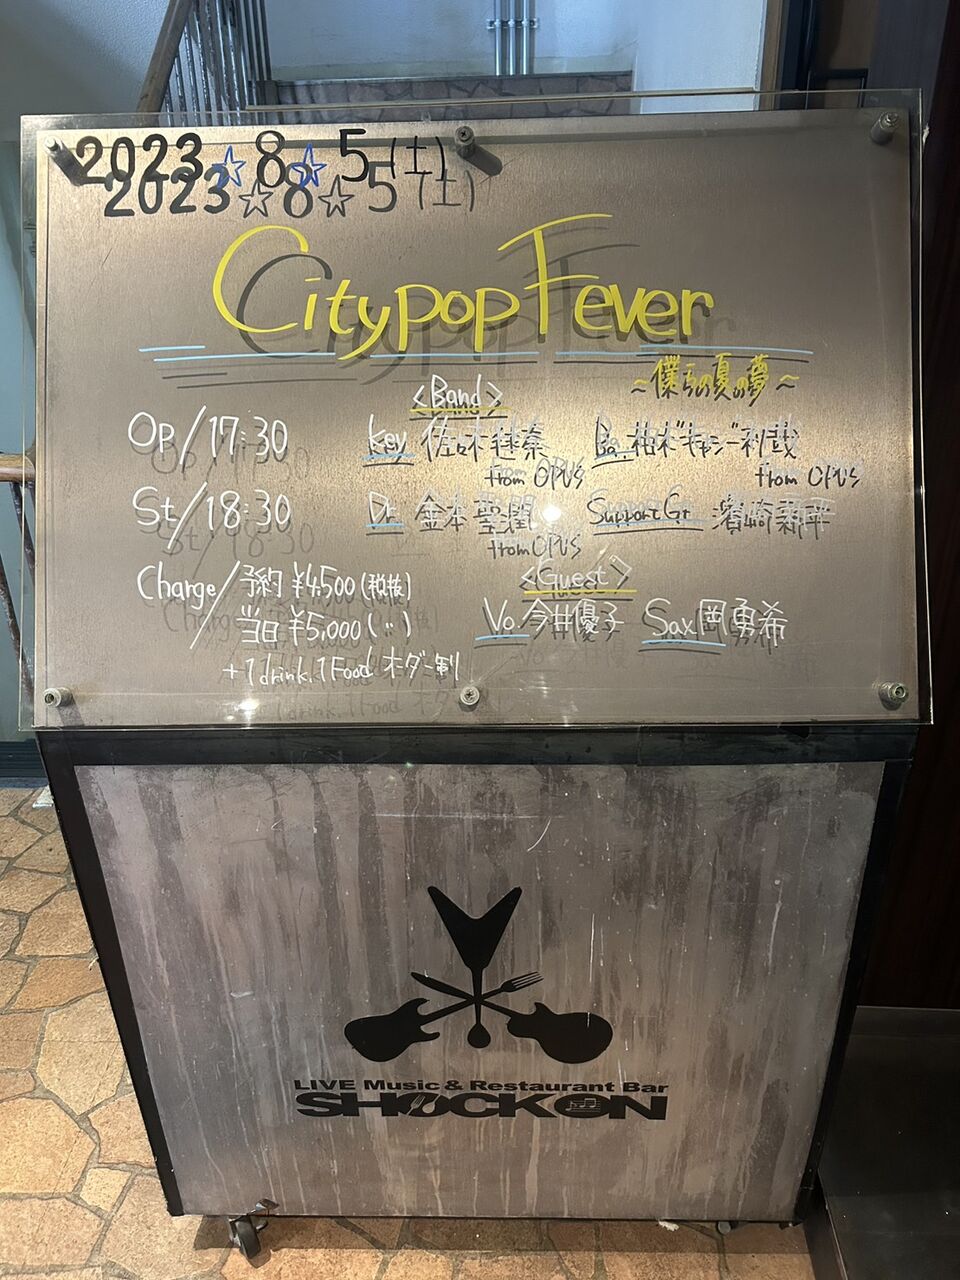 2023☆8☆5(土)
Citypop Fever
~僕らの夏の夢~
<Band>
Op/17:30
Key 佐々木継奏
from OPUS
Ba. 柏木ギャジー利哉
from OPUS
St/18:30
Dr. 金本聖潤
from OPUS
Support Gt 濱崎舜平
Charge/予約 ¥4,500(税抜)
/当日 ¥5,000(〃)
+1drink.1Food オーダー制
<Guest>
Vo. 今井優子 Sax 岡勇希
LIVE Music & Restaurant Bar
SHOCK ON